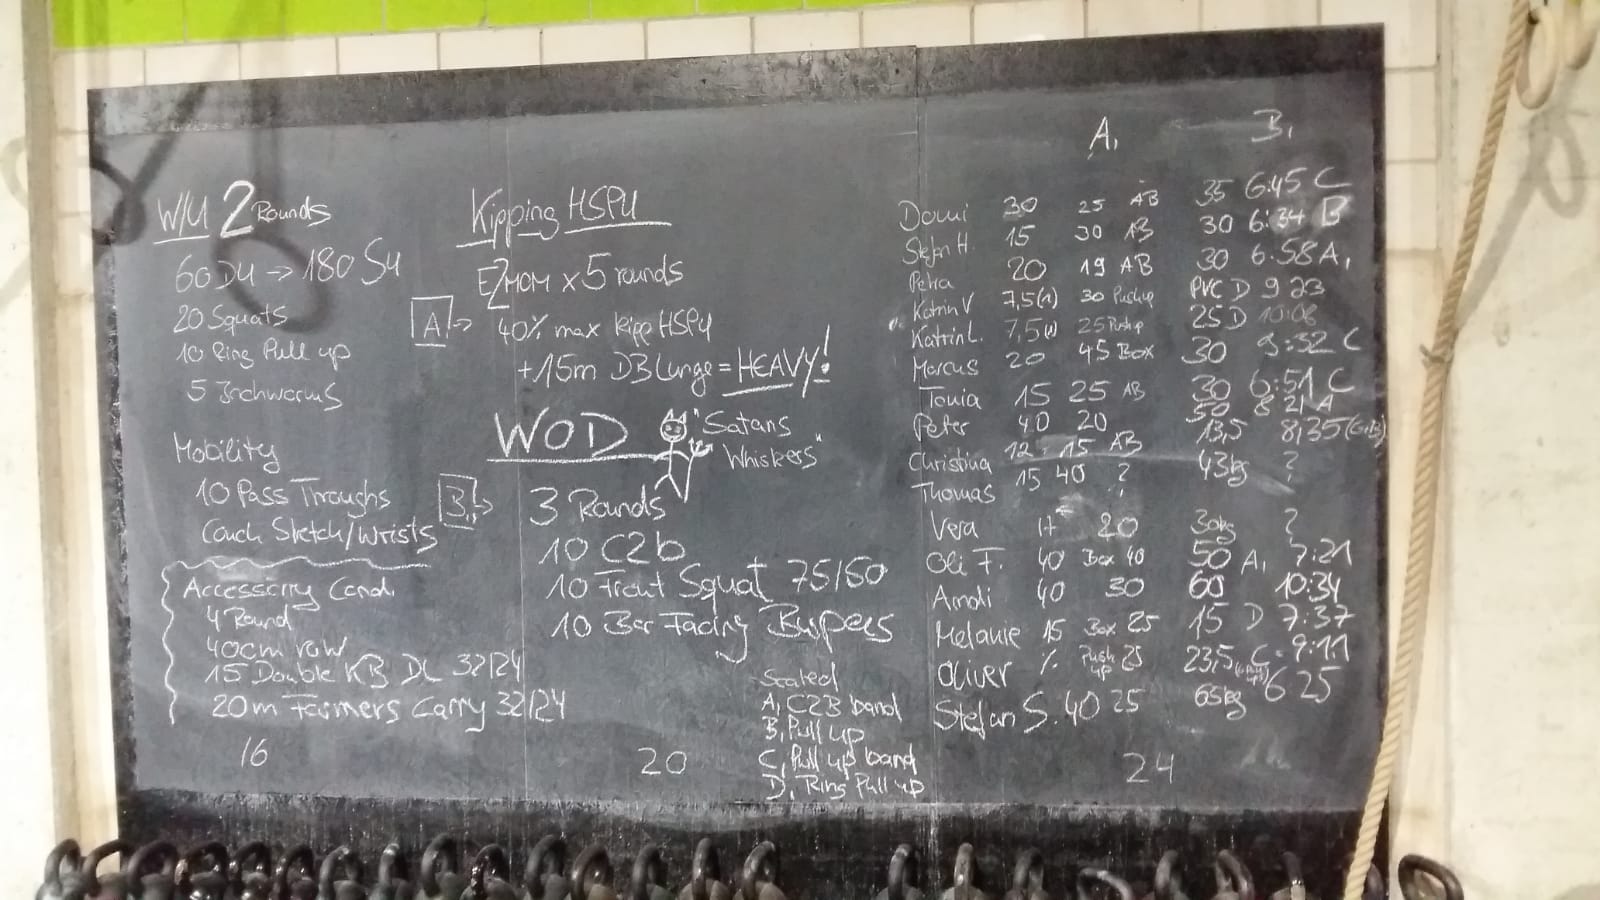 W/U 2 Rounds
60 DU → 180 SU
20 Squats
10 Ring Pull up
5 Inchworms
Mobility
10 Pass Throughs
Couch Stretch/Wrists
Accessorry Cond.
4 Round
40cm row
15 Double KB DL 32/24
20m Farmers Carry 32/24
16
Kipping HSPU
E2MOM x 5 rounds
A → 40% max kipp HSPU
+15m DB Lunge = HEAVY!
WOD "Satans
Whiskers"
B, → 3 Rounds
10 C2b
10 Front Squat 75/50
10 Bar Facing Burpees
Scaled
A, C2B band
B, Pull up
C, Pull up band
D, Ring Pull up
20
A, B,
Domi 30 25 AB 35 6:45 C
Stefan H. 15 30 AB 30 6:34 B
Petra 20 19 AB 30 6:58 A,
Katrin V 7,5(1) 30 Push up PVC D 9 23
Katrin L. 7,5 25 Push up 25 D 10:08
Marcus 20 45 Box 30 9:32 C
Tonia 15 25 AB 30 6:51 C
Peter 40 20 50 8 21 A
Christina 12 15 AB 13,5 8,35
Thomas 15 40 ? 43kg ?
Vera 17 20 30kg ?
Oli F. 40 Box 40 50 A, 7:21
Andi 40 30 60 10:34
Melanie 15 Box 25 15 D 7:37
Oliver % Push up 25 23,5 C 9:11
Stefan S. 40 25 65kg 6 25
24